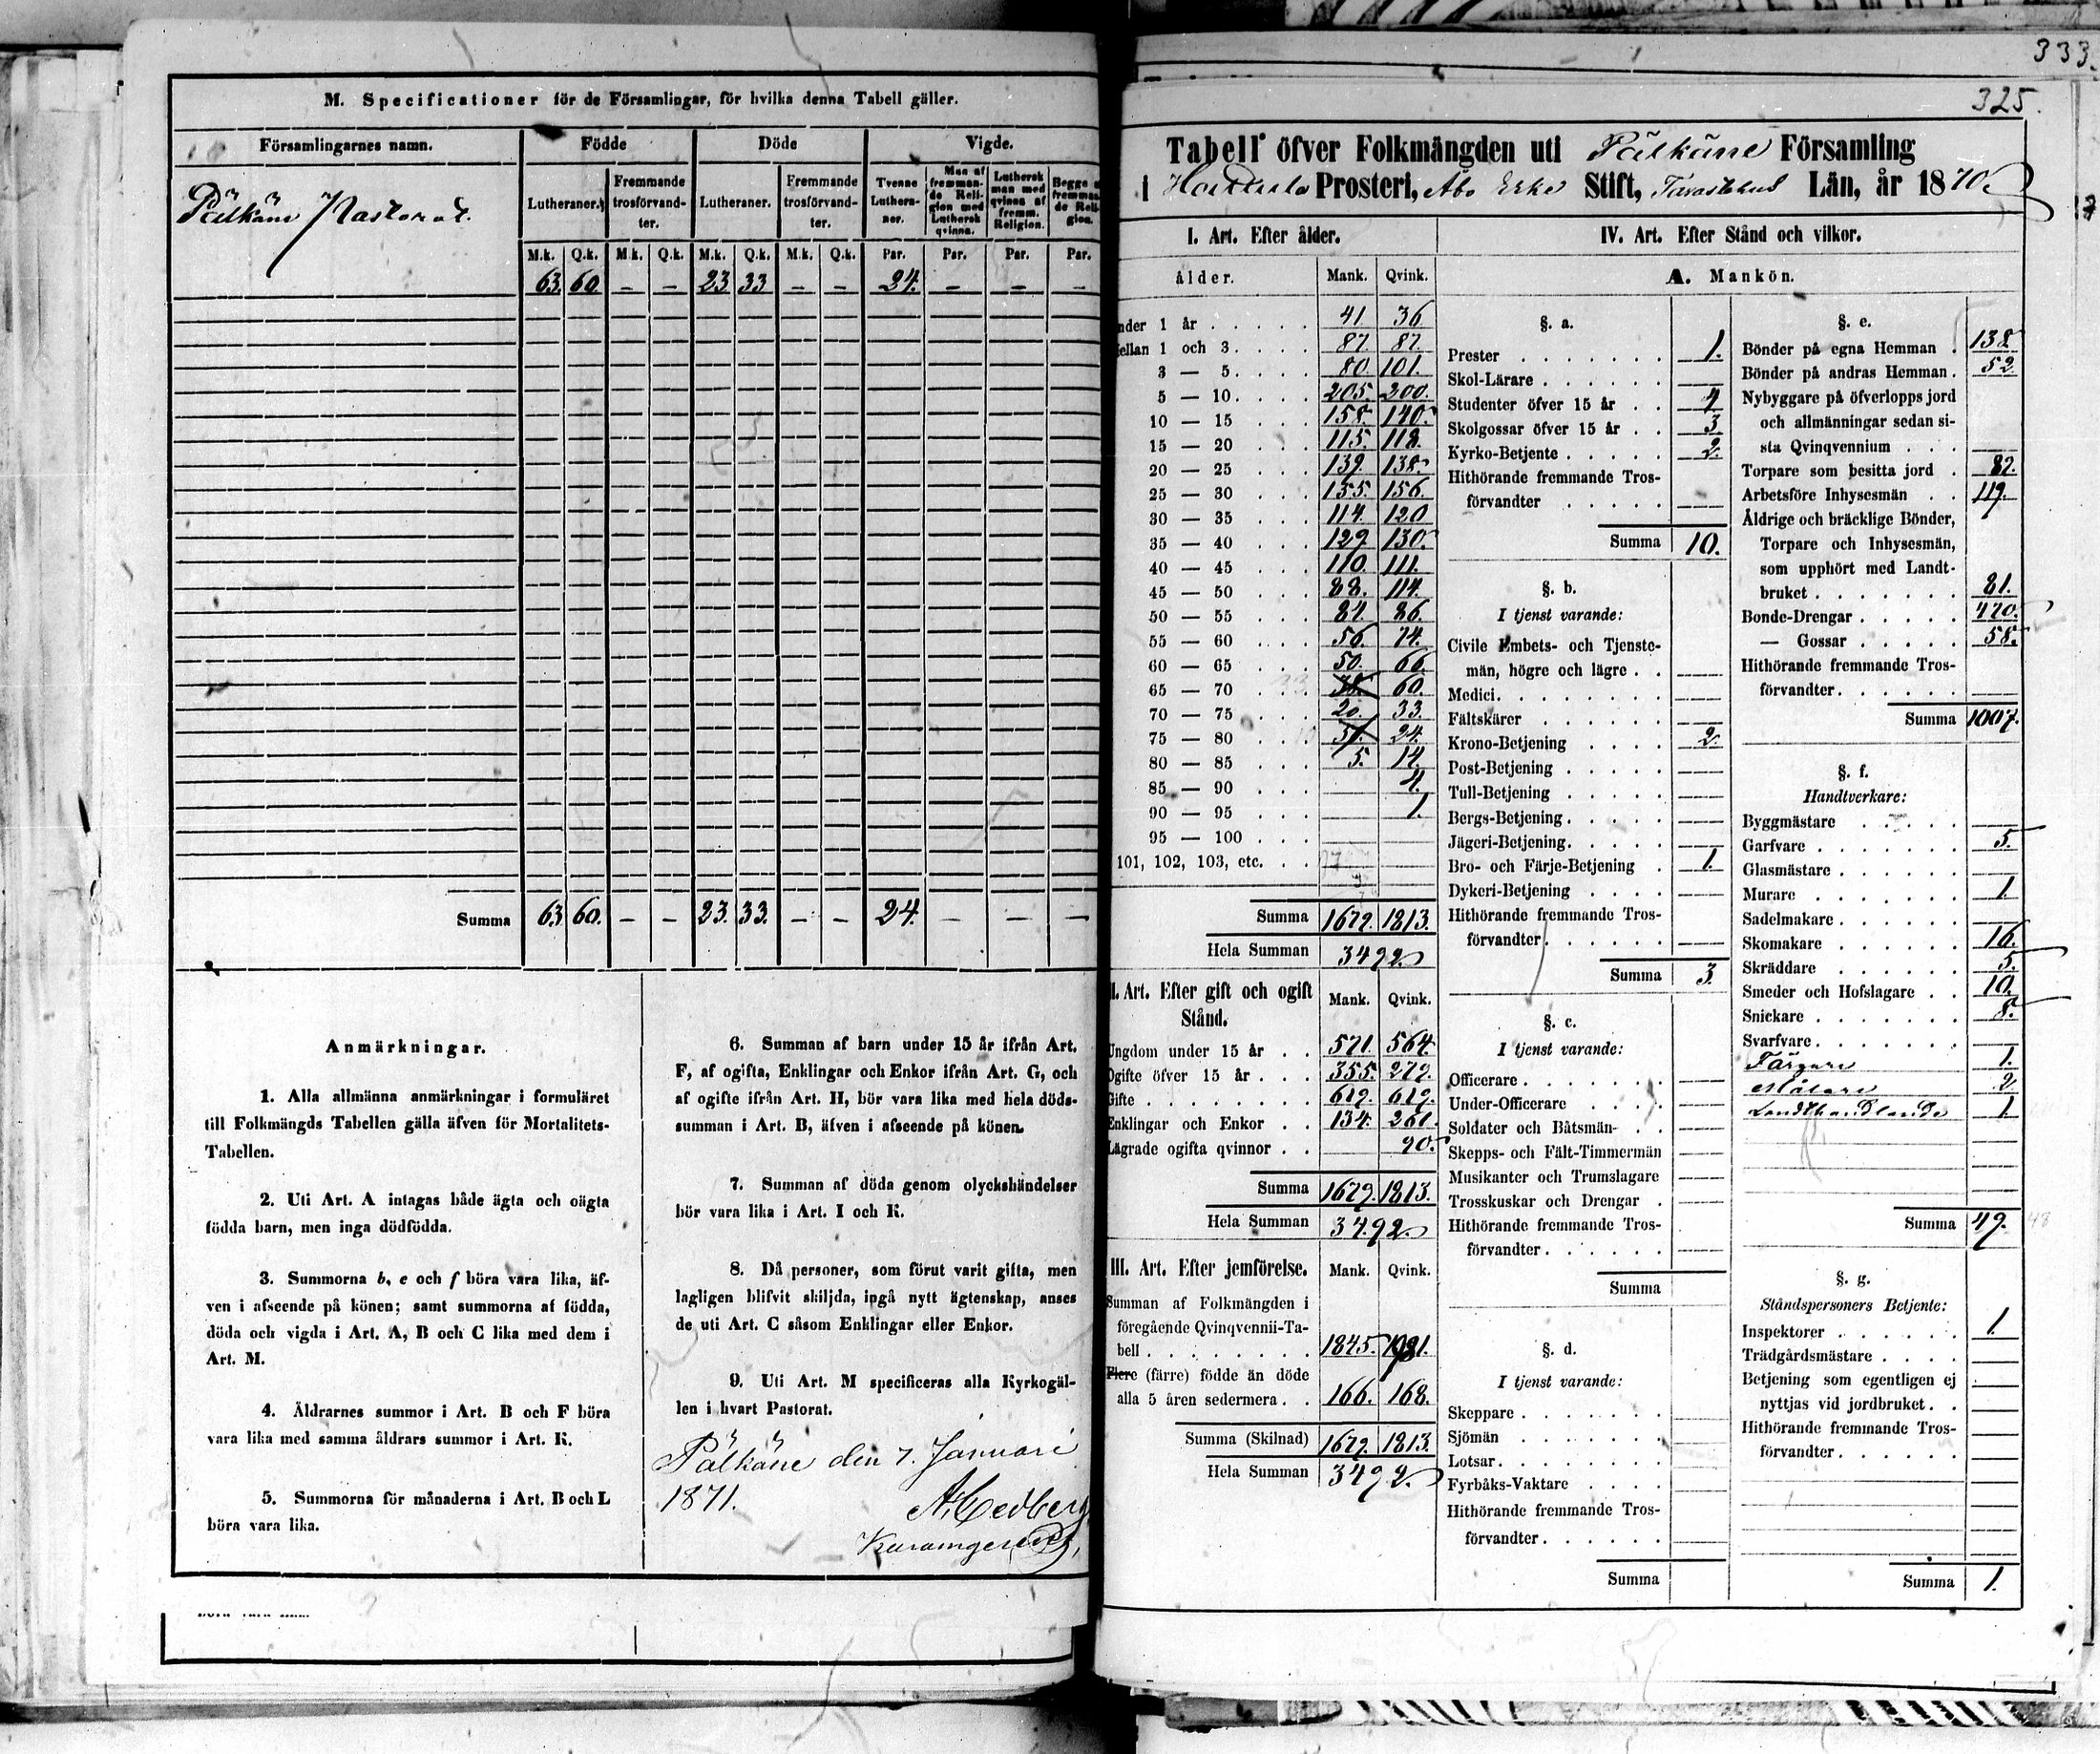 M. Specificationer för de Församlingar, för hvilka denna Tabell gäller.
Församlingarnes namn. Födde Döde Vigde.
Lutheraner. Fremmande trosförvandter. Lutheraner. Fremmande trosförvandter. Tvenne Lutheraner. Man af fremmande Religion med Luthersk qvinna. Luthersk man med qvinna af fremm. Religion. Begge af fremmande Religion.
M.k. Q.k. M.k. Q.k. M.k. Q.k. M.k. Q.k. Par. Par. Par. Par.
Pälkäne Pastorat. 63. 60. — — 23 33 — — 24. — — —
Summa 63 60. — — 23. 33. — — 24. — — —
Anmärkningar.
1. Alla allmänna anmärkningar i formuläret
till Folkmängds Tabellen gälla äfven för Mortalitets-
Tabellen.
2. Uti Art. A intagas både ägta och oägta
födda barn, men inga dödfödda.
3. Summorna b, e och f böra vara lika, äf-
ven i afseende på könen; samt summorna af födda,
döda och vigda i Art. A, B och C lika med dem i
Art. M.
4. Äldrarnes summor i Art. B och F böra
vara lika med samma åldrars summor i Art. K.
5. Summorna för månaderna i Art. B och L
böra vara lika.
6. Summan af barn under 15 år ifrån Art.
F, af ogifta, Enklingar och Enkor ifrån Art. G, och
af ogifte ifrån Art. H, bör vara lika med hela döds-
summan i Art. B, äfven i afseende på könen.
7. Summan af döda genom olyckshändelser
bör vara lika i Art. I och K.
8. Då personer, som förut varit gifta, men
lagligen blifvit skiljda, ingå nytt ägtenskap, anses
de uti Art. C såsom Enklingar eller Enkor.
9. Uti Art. M specificeras alla Kyrkogäl-
len i hvart Pastorat.
Pälkäne den 7. Januari
1871. A. Cedberg
333.
325.
Tabell öfver Folkmängden uti Pälkäne Församling
i Hauho Prosteri, Åbo Erke Stift, Tavastehus Län, år 1870.
I. Art. Efter ålder.
ålder. Mank. Qvink.
nder 1 år 41 36
ellan 1 och 3. 87. 87.
3 — 5. 80. 101.
5 — 10. 205. 200.
10 — 15 158. 140.
15 — 20 115. 118.
20 — 25 139. 138.
25 — 30 155. 156.
30 — 35 114. 120
35 — 40 129. 130.
40 — 45 110. 111.
45 — 50 88. 114.
50 — 55 84. 86.
55 — 60 56. 74.
60 — 65 50. 66.
65 — 70 60.
70 — 75 20. 33.
75 — 80 24.
80 — 85 5. 14.
85 — 90 4.
90 — 95 1.
95 — 100
101, 102, 103, etc.
Summa 1679. 1813.
Hela Summan 3492.
II. Art. Efter gift och ogift
Stånd. Mank. Qvink.
Ungdom under 15 år 571. 564.
Ogifte öfver 15 år 355. 279.
Gifte 619. 619.
Enklingar och Enkor 134. 261.
Lägrade ogifta qvinnor 90.
Summa 1679. 1813.
Hela Summan 3492.
III. Art. Efter jemförelse. Mank. Qvink.
Summan af Folkmängden i
föregående Qvinqvennii-Ta-
bell 1845. 1981.
Flere (färre) födde än döde
alla 5 åren sedermera 166. 168.
Summa (Skilnad) 1679. 1813.
Hela Summan 3492.
IV. Art. Efter Stånd och vilkor.
A. Mankön.
§. a.
Prester 1.
Skol-Lärare
Studenter öfver 15 år 4
Skolgossar öfver 15 år 3.
Kyrko-Betjente 2.
Hithörande fremmande Tros-
förvandter
Summa 10.
§. b.
I tjenst varande:
Civile Embets- och Tjenste-
män, högre och lägre
Medici.
Fältskärer
Krono-Betjening 2.
Post-Betjening
Tull-Betjening
Bergs-Betjening
Jägeri-Betjening
Bro- och Färje-Betjening 1.
Dykeri-Betjening
Hithörande fremmande Tros-
förvandter
Summa 3.
§. c.
I tjenst varande:
Officerare
Under-Officerare
Soldater och Båtsmän
Skepps- och Fält-Timmermän
Musikanter och Trumslagare
Trosskuskar och Drengar
Hithörande fremmande Tros-
förvandter
Summa
§. d.
I tjenst varande:
Skeppare
Sjömän
Lotsar
Fyrbåks-Vaktare
Hithörande fremmande Tros-
förvandter
Summa
§. e.
Bönder på egna Hemman 138.
Bönder på andras Hemman 52.
Nybyggare på öfverlopps jord
och allmänningar sedan si-
sta Qvinqvennium
Torpare som besitta jord 89.
Arbetsföre Inhysesmän 119.
Åldrige och bräcklige Bönder,
Torpare och Inhysesmän,
som upphört med Landt-
bruket 81.
Bonde-Drengar 470.
— Gossar 58.
Hithörande fremmande Tros-
förvandter
Summa 1007.
§. f.
Handtverkare:
Byggmästare
Garfvare 5.
Glasmästare
Murare 1.
Sadelmakare
Skomakare 16.
Skräddare 5.
Smeder och Hofslagare 10.
Snickare 8.
Svarfvare
Färgare 1.
Målare 2.
Landthandlande 1.
Summa 49. 48
§. g.
Ståndspersoners Betjente:
Inspektorer 1.
Trädgårdsmästare
Betjening som egentligen ej
nyttjas vid jordbruket
Hithörande fremmande Tros-
förvandter
Summa 1.